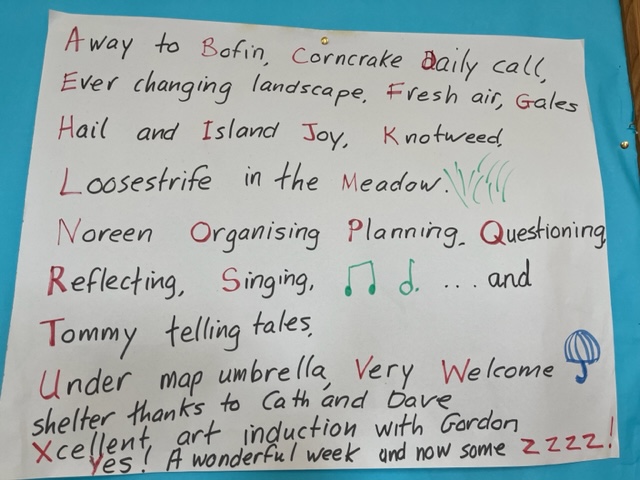 Away to Bofin, Corncrake Daily call,
Ever changing landscape, Fresh air, Gales
Hail and Island Joy, Knotweed,
Loosestrife in the Meadow.
Noreen Organising Planning, Questioning
Reflecting, Singing, ... and
Tommy telling tales,
Under map umbrella, Very Welcome
shelter thanks to Cath and Dave
Xcellent, art induction with Gordon
Yes! A wonderful week and now some ZZZZ!